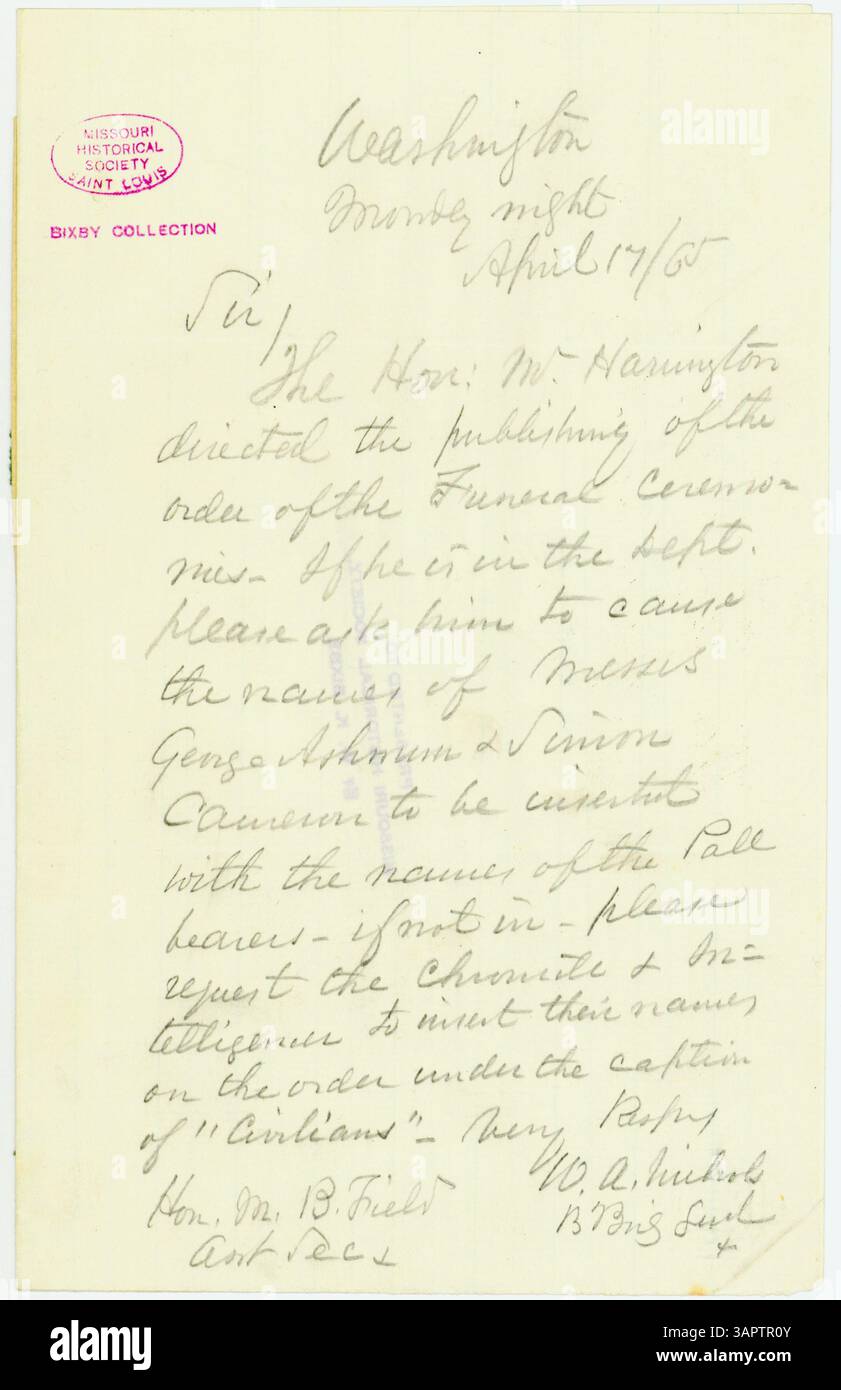 MISSOURI
HISTORICAL
SOCIETY
SAINT LOUIS
BIXBY COLLECTION
Washington
Monday night
April 17/65
Sir,
The Hon: Mr. Harrington
directed the publishing of the
order of the Funeral Ceremo-
nies - If he is in the Dept.
please ask him to cause
the names of Messrs
George Ashmum & Simon
Cameron to be inserted
with the names of the Pall
bearers - if not in - please
request the Chronicle & In=
telligencer to insert their names
on the order under the caption
of "Civilians" - Very Respy
W. A. Nichols
B Brig Genl
Hon. M. B. Field
Asst Secy
alamy
Image ID: 3APTR0Y
www.alamy.com